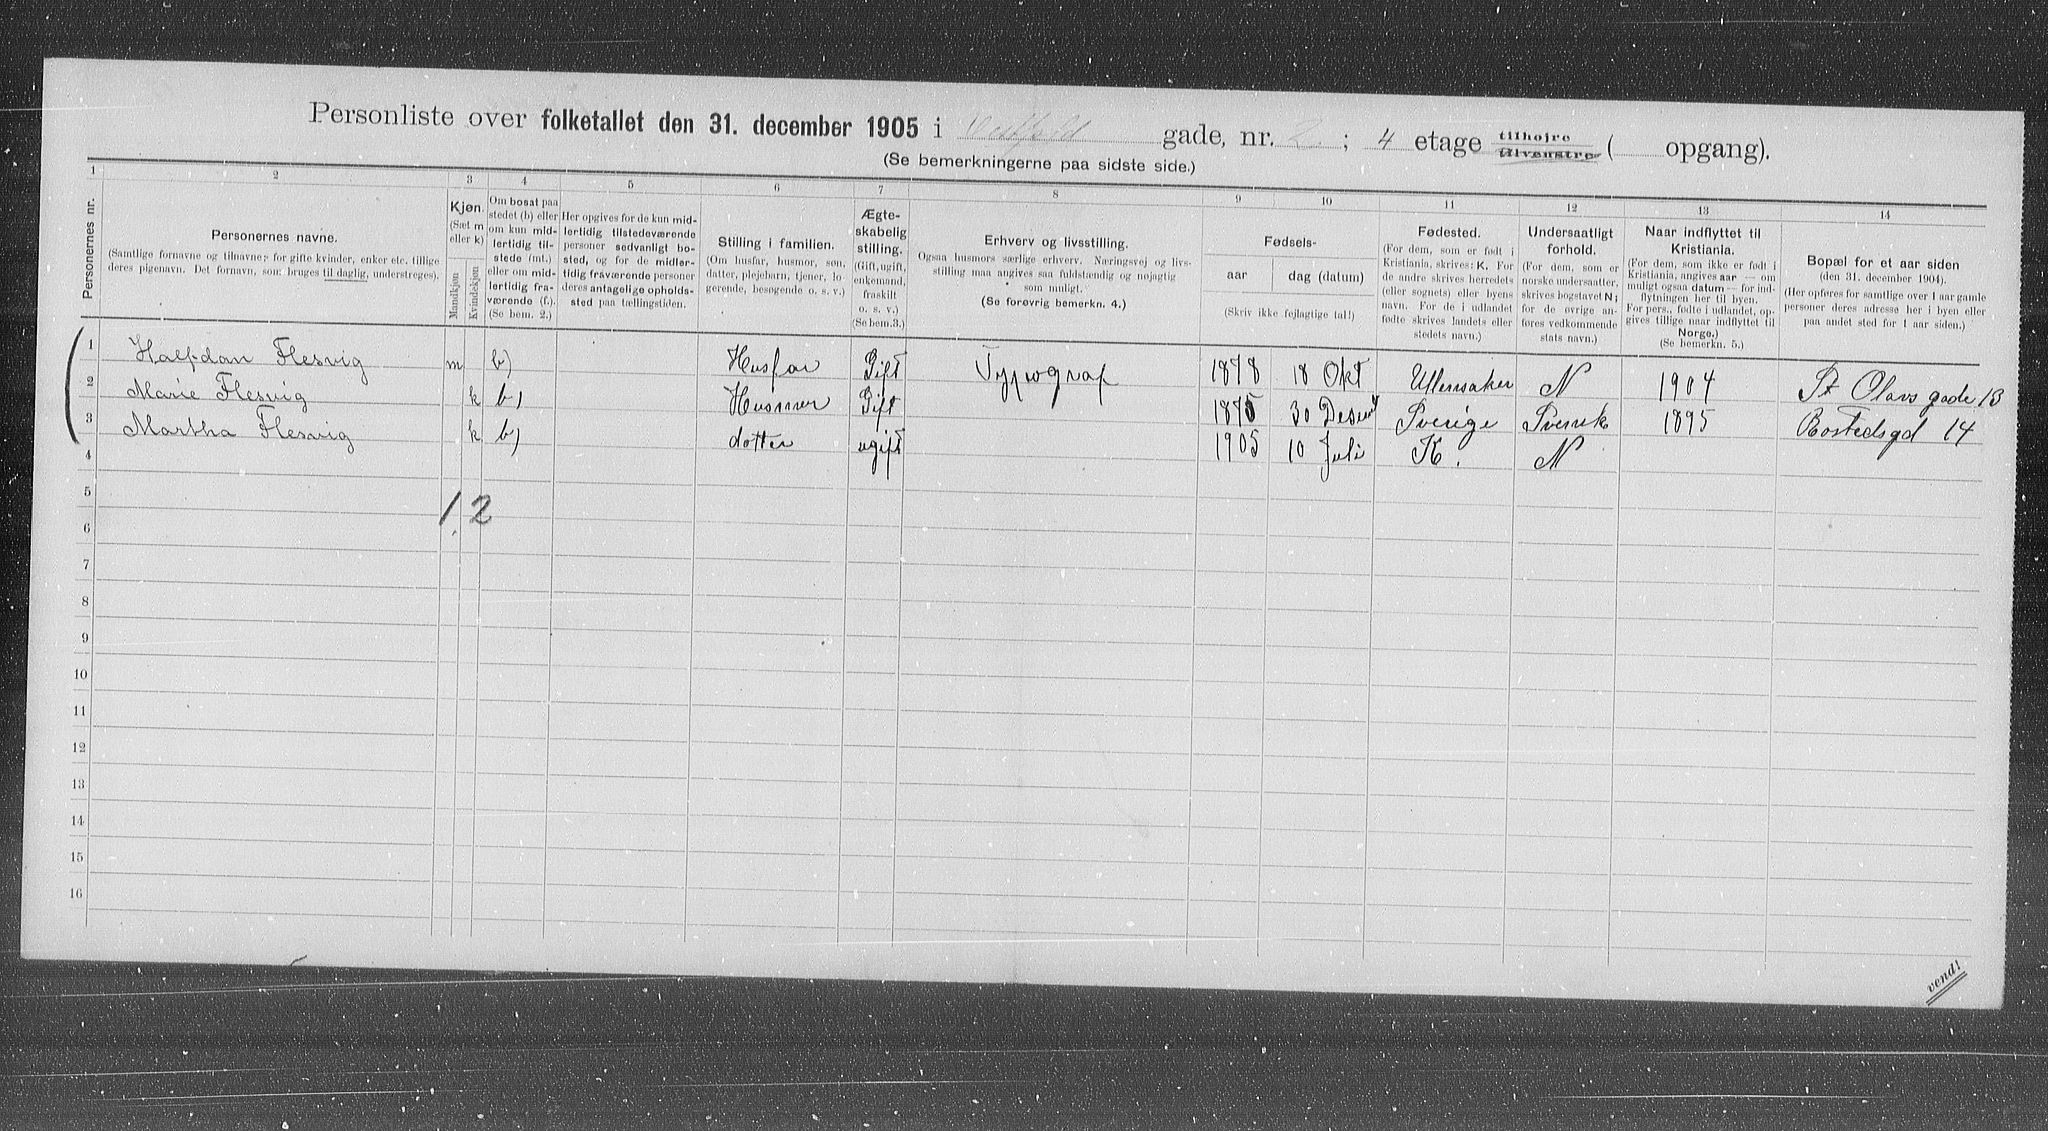 Personliste over folketallet den 31. december 1905 i Vestfold gade, nr. 2. ; 4 etage tilhøjre tilvenstre ( opgang).
(Se bemerkningerne paa sidste side.)
1 2 3 4 5 6 7 8 9 10 11 12 13 14
Personernes nr.
Personernes navne.
(Samtlige fornavne og tilnavne; for gifte kvinder, enker etc. tillige
deres pigenavn. Det fornavn, som bruges til daglig, understreges).
Kjøn.
(Sæt m
eller k)
Mandkjøn
Kvindekjøn
Om bosat paa
stedet (b) eller
om kun mid-
lertidig til-
stede (mt.)
eller om mid-
lertidig fra-
værende (f.).
(Se bem. 2.)
Her opgives for de kun mid-
lertidig tilstedeværende
personer sedvanligt bo-
sted, og for de midler-
tidig fraværende personer
deres antagelige opholds-
sted paa tællingstiden.
Stilling i familien.
(Om husfar, husmor, søn,
datter, plejebarn, tjener, lo-
gerende, besøgende o. s. v.)
Ægte-
skabelig
stilling.
(Gift, ugift,
enkemand,
fraskilt
o. s. v.)
(Se bem. 3.)
Erhverv og livsstilling.
Ogsaa husmors særlige erhverv. Næringsvej og livs-
stilling maa angives saa fuldstændig og nøjagtig
som muligt.
(Se forøvrig bemerkn. 4.)
Fødsels-
aar
dag (datum)
(Skriv ikke fejlagtige tal!)
Fødested.
(For dem, som er født i
Kristiania, skrives: K. For
de andre skrives herredets
(eller sognets) eller byens
navn. For de i udlandet
fødte skrives landets eller
stedets navn.)
Undersaatligt
forhold.
(For dem, som er
norske undersaatter,
skrives bogstavet N;
for de øvrige an-
føres vedkommende
stats navn.)
Naar indflyttet til
Kristiania.
(For dem, som ikke er født i
Kristiania, angives aar — om
muligt ogsaa datum — for ind-
flytningen her til byen.
For pers., fødte i udlandet, op-
gives tillige naar indflyttet til
Norge.)
(Se bemerkn. 5.)
Bopæl for et aar siden
(den 31. december 1904).
(Her opføres for samtlige over 1 aar gamle
personer deres adresse her i byen eller
paa andet sted for 1 aar siden.)
1 Halfdan Flesvig m b) Husfar Gift Typograf 1878 18 Okt Ullensaker N 1904 St Olavs gade 13
2 Marie Flesvig k b) Husmor Gift 1875 30 Sverige Svensk 1895 14
3 Martha Flesvig k b) dotter ugift 1905 10 Juli K. N
4
5
1 2
6
7
8
9
10
11
12
13
14
15
16
vend!